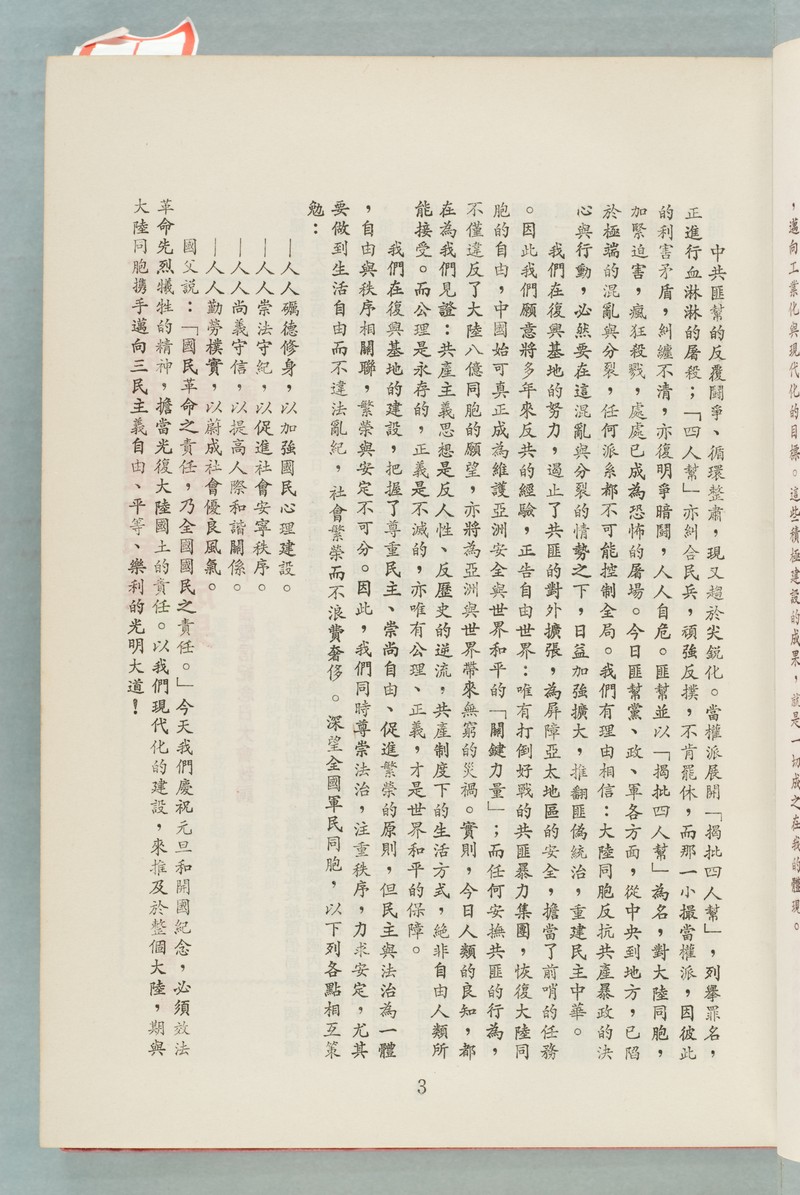 ，邁向工業化與現代化的目標。這些積極建設的成果，就是一切成之在我的體現。
中共匪幫的反覆鬪爭、循環整肅，現又趨於尖銳化。當權派展開「揭批四人幫」，列舉罪名，
正進行血淋淋的屠殺；「四人幫」亦糾合民兵，頑強反撲，不肯罷休，而那一小撮當權派，因彼此
的利害矛盾，糾纏不清，亦復明爭暗鬪，人人自危。匪幫並以「揭批四人幫」為名，對大陸同胞，
加緊迫害，瘋狂殺戮，處處已成為恐怖的屠場。今日匪幫黨、政、軍各方面，從中央到地方，已陷
於極端的混亂與分裂，任何派系都不可能控制全局。我們有理由相信：大陸同胞反抗共產暴政的決
心與行動，必然要在這混亂與分裂的情勢之下，日益加強擴大，推翻匪偽統治，重建民主中華。
我們在復興基地的努力，遏止了共匪的對外擴張，為屏障亞太地區的安全，擔當了前哨的任務
。因此我們願意將多年來反共的經驗，正告自由世界：唯有打倒好戰的共匪暴力集團，恢復大陸同
胞的自由，中國始可真正成為維護亞洲安全與世界和平的「關鍵力量」；而任何安撫共匪的行為，
不僅違反了大陸八億同胞的願望，亦將為亞洲與世界帶來無窮的災禍。實則，今日人類的良知，都
在為我們見證：共產主義思想是反人性、反歷史的逆流，共產制度下的生活方式，絕非自由人類所
能接受。而公理是永存的，正義是不滅的，亦唯有公理、正義，才是世界和平的保障。
我們在復興基地的建設，把握了尊重民主、崇尚自由、促進繁榮的原則，但民主與法治為一體
，自由與秩序相關聯，繁榮與安定不可分。因此，我們同時尊崇法治，注重秩序，力求安定，尤其
要做到生活自由而不違法亂紀，社會繁榮而不浪費奢侈。深望全國軍民同胞，以下列各點相互策
勉：
—人人礪德修身，以加強國民心理建設。
—人人崇法守紀，以促進社會安寧秩序。
—人人尚義守信，以提高人際和諧關係。
—人人勤勞樸實，以蔚成社會優良風氣。
國父說：「國民革命之責任，乃全國國民之責任。」今天我們慶祝元旦和開國紀念，必須效法
革命先烈犧牲的精神，擔當光復大陸國土的責任。以我們現代化的建設，來推及於整個大陸，期與
大陸同胞携手邁向三民主義自由、平等、樂利的光明大道！
3